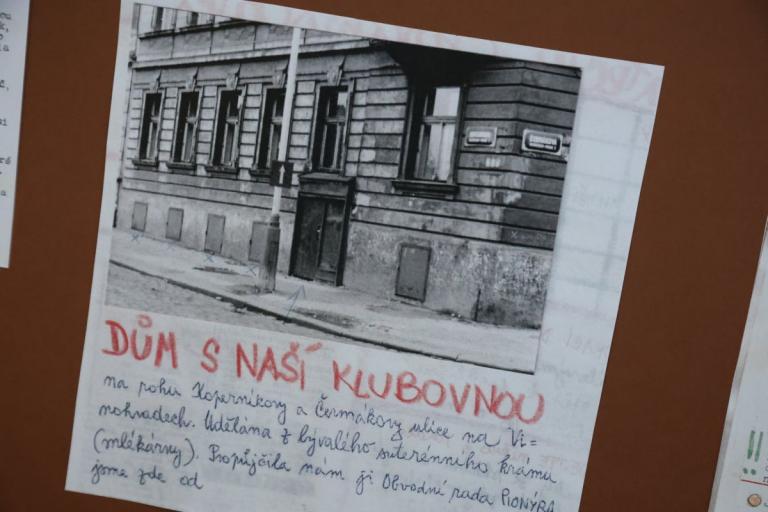 DŮM S NAŠÍ KLUBOVNOU
na rohu Koperníkovy a Čermákovy ulice na Vi=
nohradech. Udělána z bývalého suterénního krámu
(mlékárny). Propůjčila nám ji Obvodní rada PIONÝRA
jsme zde od